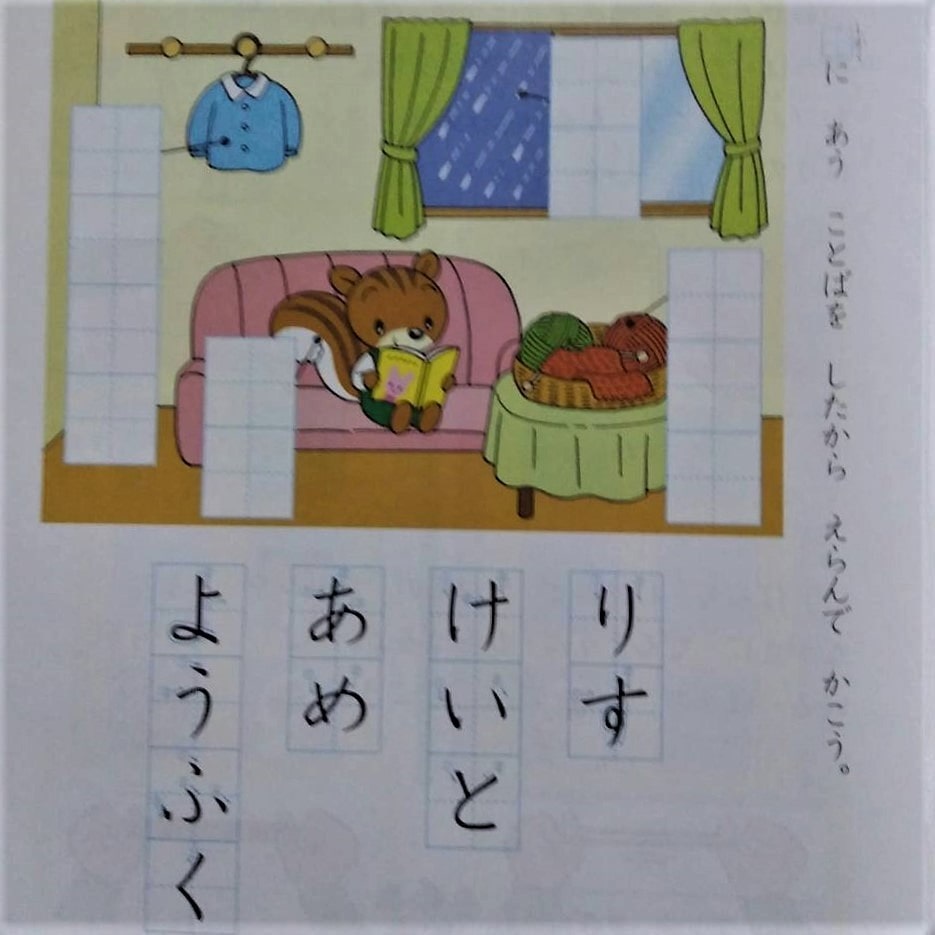 に あう ことばを したから えらんで かこう。
りす
けいと
あめ
ようふく